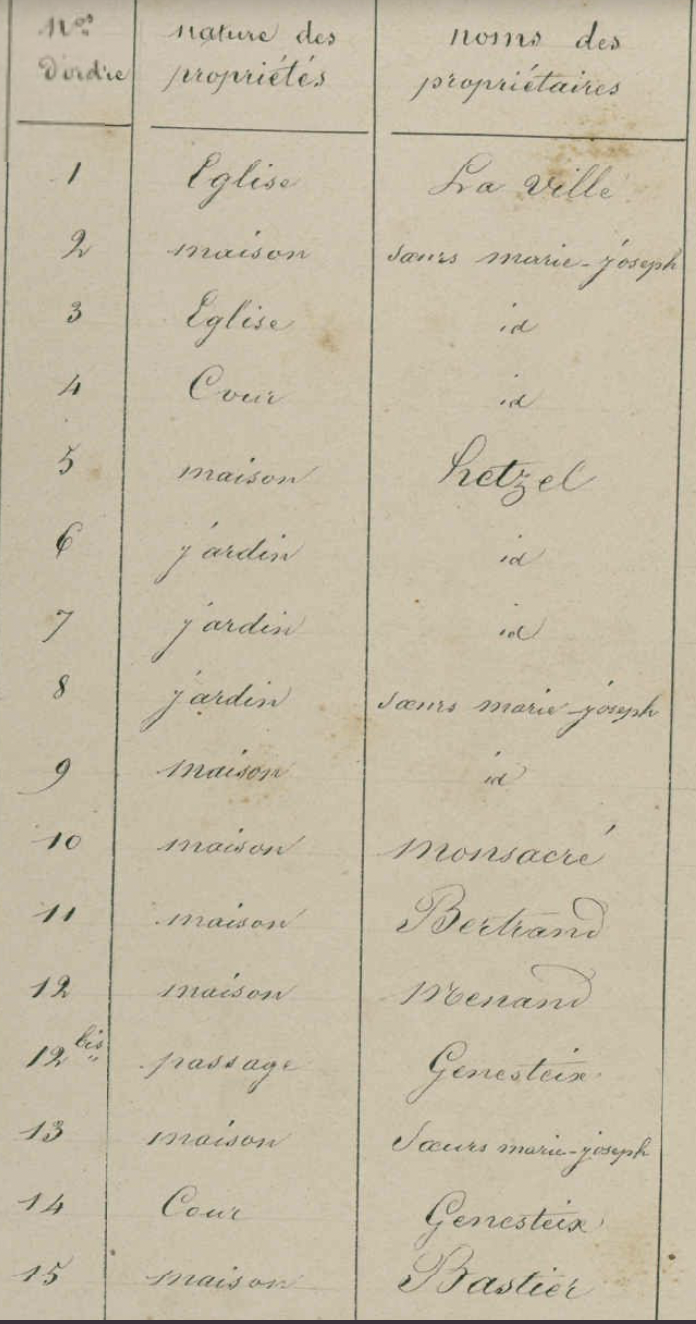 Nos nature des noms des
d'ordre propriétés propriétaires
1 Eglise La ville
2 maison sœurs marie-joseph
3 Eglise id
4 Cour id
5 maison hetzel
6 jardin id
7 jardin id
8 jardin sœurs marie-joseph
9 maison id
10 maison monsacré
11 maison Bertrand
12 maison menand
12 bis passage Genesteix
13 maison Sœurs marie-joseph
14 Cour Genesteix
15 maison Bastier